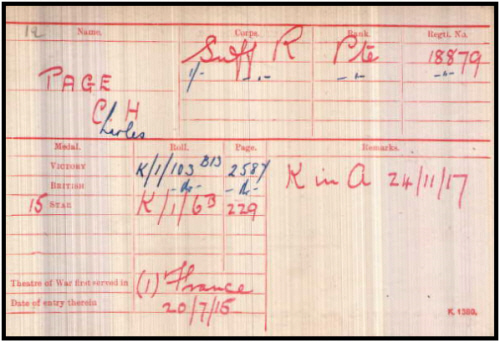 Name. Corps. Rank. Regtl. No.
Suff R Pte 18879
1/- -"- -"- -"-
PAGE
C H
harles
Medal. Roll. Page. Remarks.
VICTORY K/1/103 B13 2587
BRITISH -do- -do- K in A 24/11/17
15 STAR K/1/6B 229
Theatre of War first served in (1) France
Date of entry therein 20/7/15
K. 1380.